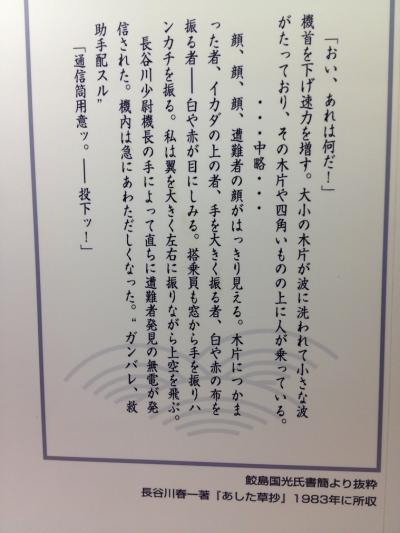 「おい、あれは何だ！」
機首を下げ速力を増す。大小の木片が波に洗われて小さな波
がたっており、その木片や四角いものの上に人が乗っている。
・・・中略・・・
顔、顔、顔、遭難者の顔がはっきり見える。木片につかま
った者、イカダの上の者、手を大きく振る者、白や赤の布を
振る者――白や赤が目にしみる。搭乗員も窓から手を振りハ
ンカチを振る。私は翼を大きく左右に振りながら上空を飛ぶ。
長谷川少尉機長の手によって直ちに遭難者発見の無電が発
信された。機内は急にあわただしくなった。“ガンバレ、救
助手配スル”
「通信筒用意ッ。――投下ッ！」
鮫島国光氏書簡より抜粋
長谷川春一著『あした草抄』1983年に所収